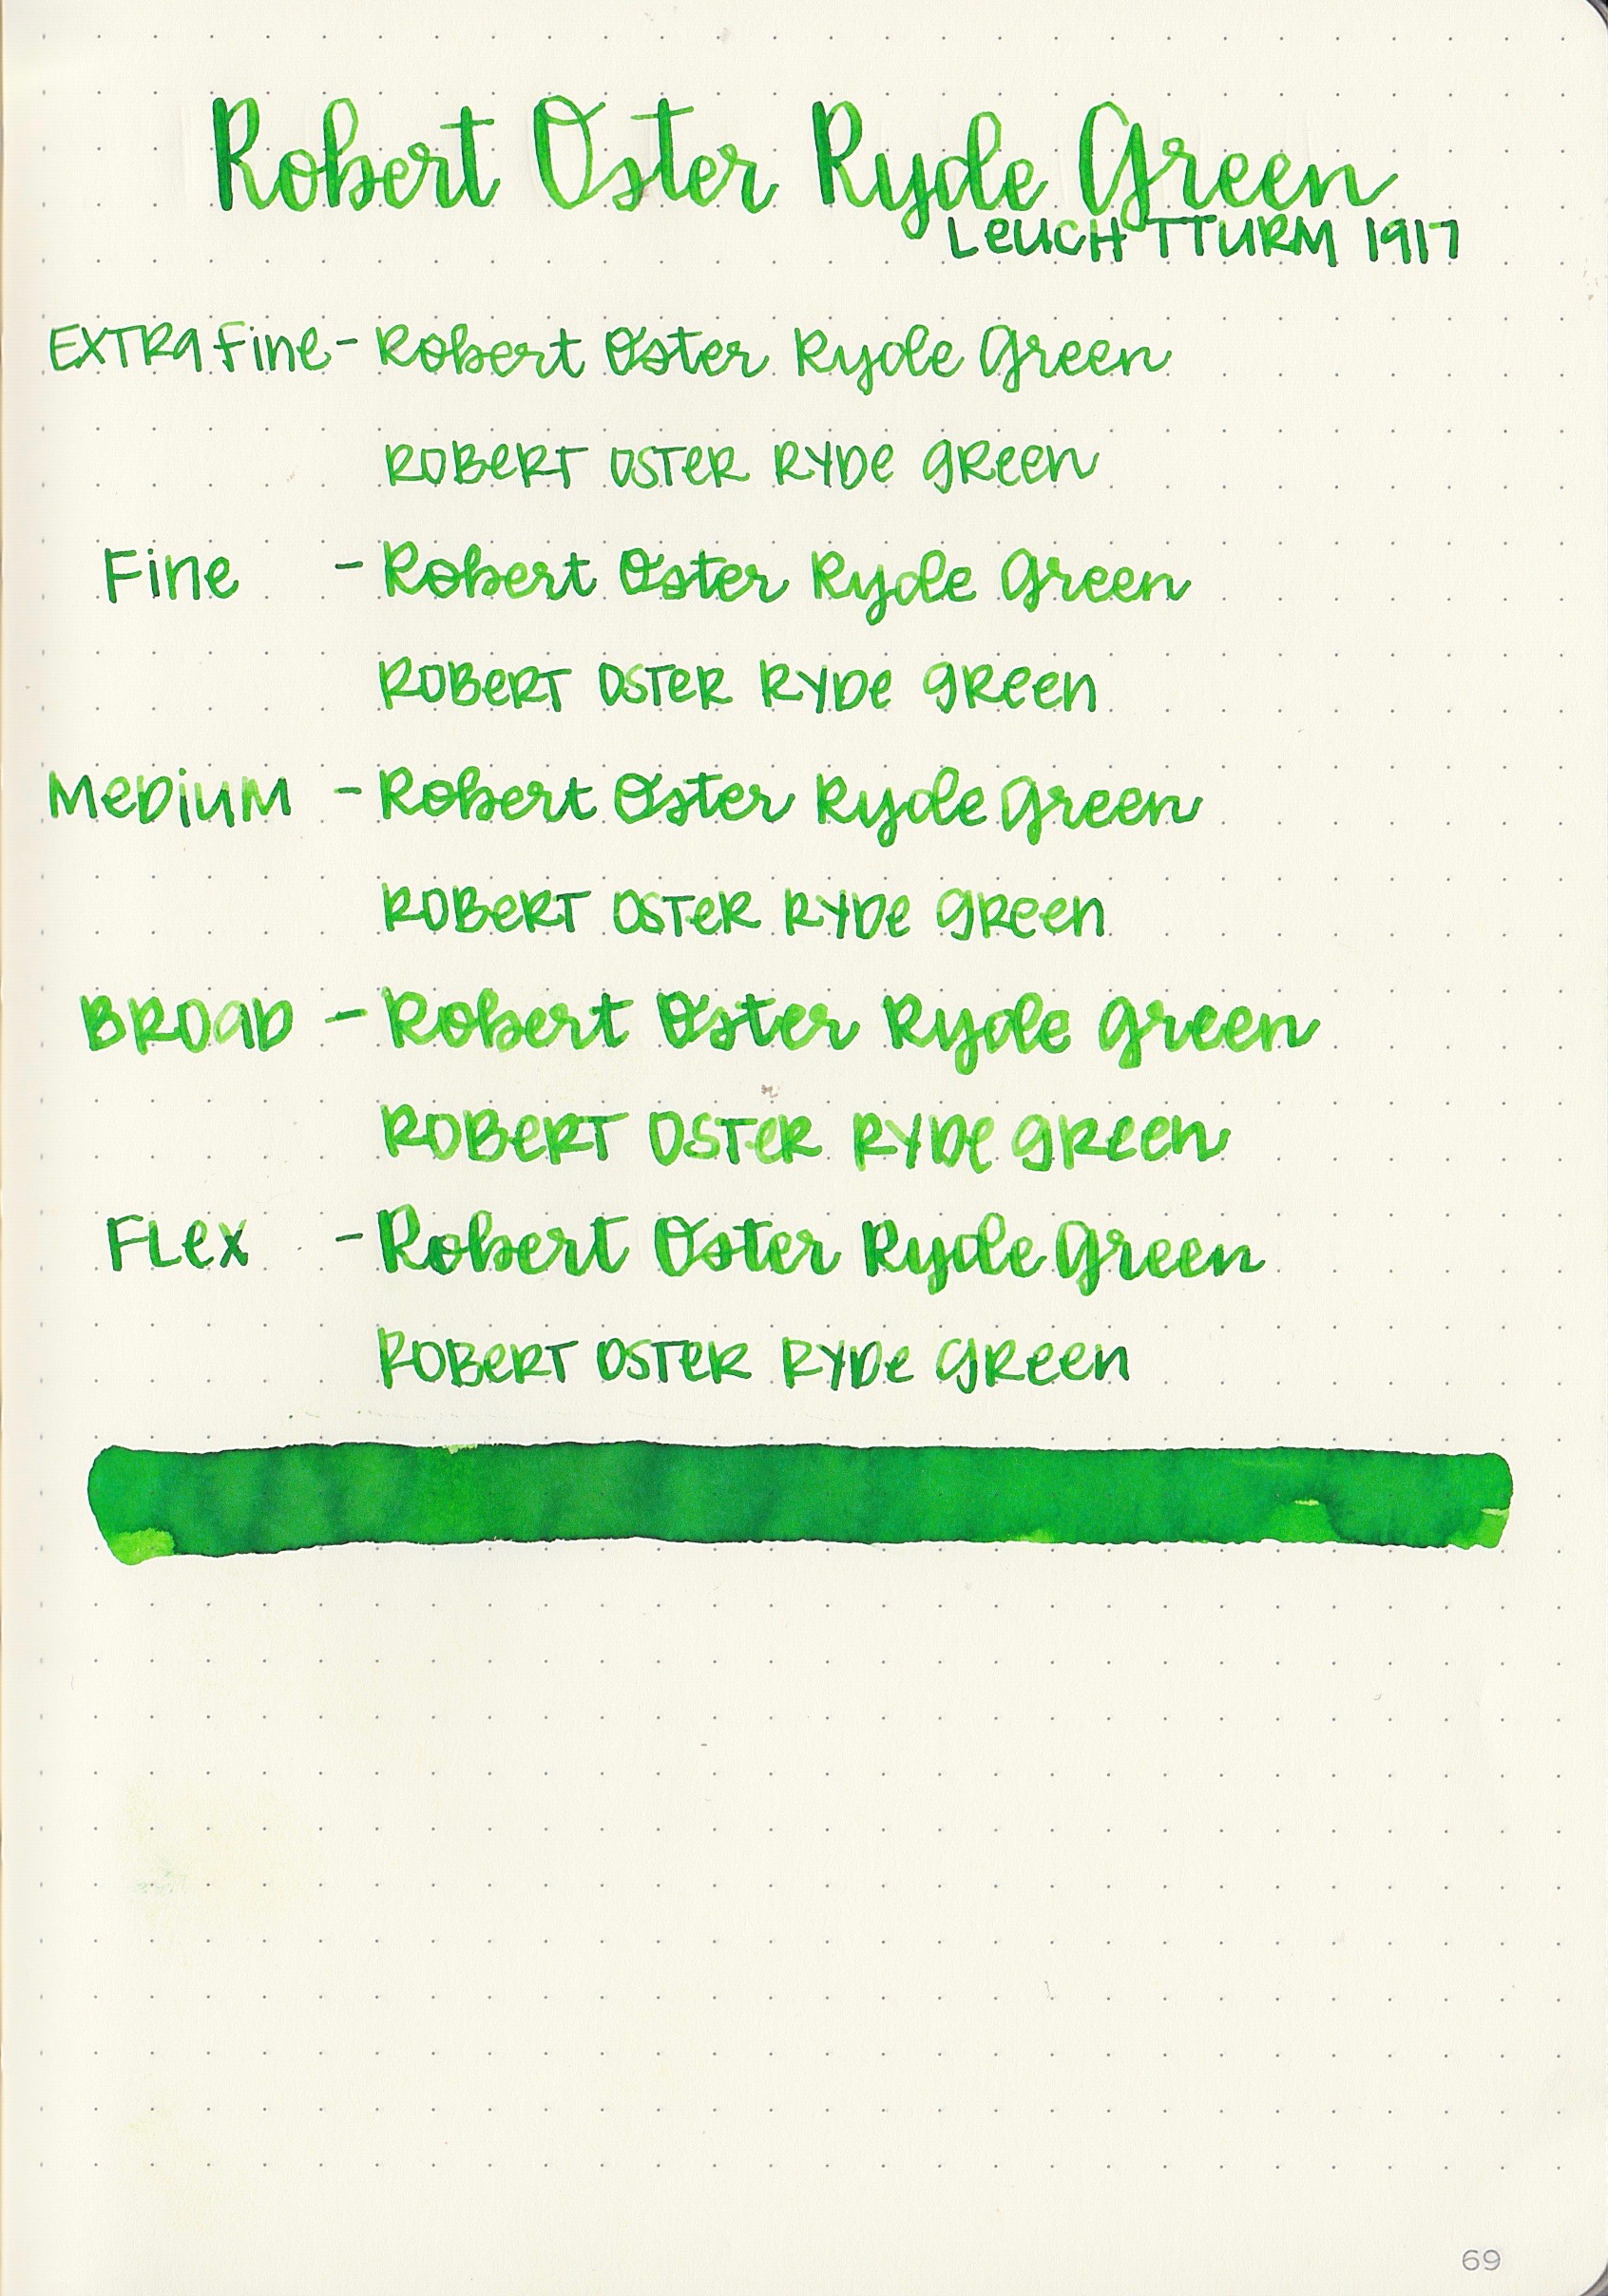 Robert Oster Ryde Green
LEUCHTTURM 1917
EXTRA Fine - Robert Oster Ryde Green
ROBERT OSTER RYDE GREEN
Fine - Robert Oster Ryde Green
ROBERT OSTER RYDE GREEN
MEDIUM - Robert Oster Ryde Green
ROBERT OSTER RYDE GREEN
BROAD - Robert Oster Ryde Green
ROBERT OSTER RYDE GREEN
FLEX - Robert Oster Ryde Green
ROBERT OSTER RYDE GREEN
69